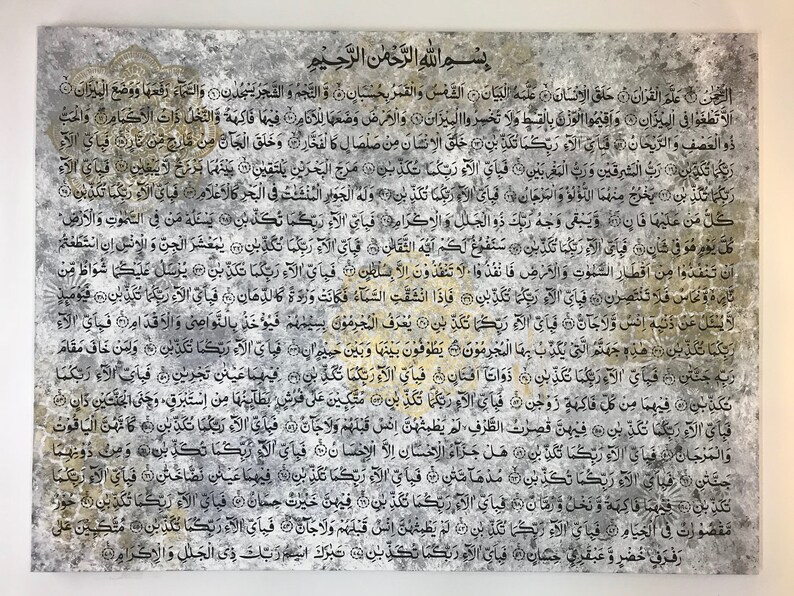 بِسْمِ اللهِ الرَّحْمٰنِ الرَّحِيْمِ
اَلرَّحْمٰنُ عَلَّمَ الْقُرْاٰنَ خَلَقَ الْاِنْسَانَ عَلَّمَهُ الْبَيَانَ اَلشَّمْسُ وَالْقَمَرُ بِحُسْبَانٍ وَّ النَّجْمُ وَ الشَّجَرُ يَسْجُدٰنِ وَالسَّمَآءَ رَفَعَهَا وَوَضَعَ الْمِيْزَانَ
اَلَّا تَطْغَوْا فِى الْمِيْزَانِ وَاَقِيْمُوا الْوَزْنَ بِالْقِسْطِ وَلَا تُخْسِرُوا الْمِيْزَانَ وَالْاَرْضَ وَضَعَهَا لِلْاَنَامِ فِيْهَا فَاكِهَةٌ وَّالنَّخْلُ ذَاتُ الْاَكْمَامِ وَالْحَبُّ
ذُو الْعَصْفِ وَ الرَّيْحَانُ فَبِاَىِّ اٰلَآءِ رَبِّكُمَا تُكَذِّبٰنِ خَلَقَ الْاِنْسَانَ مِنْ صَلْصَالٍ كَالْفَخَّارِ وَخَلَقَ الْجَآنَّ مِنْ مَّارِجٍ مِّنْ نَّارٍ فَبِاَىِّ اٰلَآءِ
رَبِّكُمَا تُكَذِّبٰنِ رَبُّ الْمَشْرِقَيْنِ وَرَبُّ الْمَغْرِبَيْنِ فَبِاَىِّ اٰلَآءِ رَبِّكُمَا تُكَذِّبٰنِ مَرَجَ الْبَحْرَيْنِ يَلْتَقِيٰنِ بَيْنَهُمَا بَرْزَخٌ لَّا يَبْغِيٰنِ فَبِاَىِّ اٰلَآءِ
رَبِّكُمَا تُكَذِّبٰنِ يَخْرُجُ مِنْهُمَا اللُّؤْلُؤُ وَالْمَرْجَانُ فَبِاَىِّ اٰلَآءِ رَبِّكُمَا تُكَذِّبٰنِ وَلَهُ الْجَوَارِ الْمُنْشَئٰتُ فِى الْبَحْرِ كَالْاَعْلَامِ فَبِاَىِّ اٰلَآءِ رَبِّكُمَا تُكَذِّبٰنِ
كُلُّ مَنْ عَلَيْهَا فَانٍ وَّيَبْقٰى وَجْهُ رَبِّكَ ذُو الْجَلٰلِ وَ الْاِكْرَامِ فَبِاَىِّ اٰلَآءِ رَبِّكُمَا تُكَذِّبٰنِ يَسْئَلُهُ مَنْ فِى السَّمٰوٰتِ وَ الْاَرْضِ
كُلَّ يَوْمٍ هُوَ فِىْ شَاْنٍ فَبِاَىِّ اٰلَآءِ رَبِّكُمَا تُكَذِّبٰنِ سَنَفْرُغُ لَكُمْ اَيُّهَ الثَّقَلٰنِ فَبِاَىِّ اٰلَآءِ رَبِّكُمَا تُكَذِّبٰنِ يٰمَعْشَرَ الْجِنِّ وَ الْاِنْسِ اِنِ اسْتَطَعْتُمْ
اَنْ تَنْفُذُوْا مِنْ اَقْطَارِ السَّمٰوٰتِ وَالْاَرْضِ فَانْفُذُوْا لَا تَنْفُذُوْنَ اِلَّا بِسُلْطٰنٍ فَبِاَىِّ اٰلَآءِ رَبِّكُمَا تُكَذِّبٰنِ يُرْسَلُ عَلَيْكُمَا شُوَاظٌ مِّنْ
نَّارٍ وَّنُحَاسٌ فَلَا تَنْتَصِرٰنِ فَبِاَىِّ اٰلَآءِ رَبِّكُمَا تُكَذِّبٰنِ فَاِذَا انْشَقَّتِ السَّمَآءُ فَكَانَتْ وَرْدَةً كَالدِّهَانِ فَبِاَىِّ اٰلَآءِ رَبِّكُمَا تُكَذِّبٰنِ فَيَوْمَئِذٍ
لَّا يُسْئَلُ عَنْ ذَنْبِهٖ اِنْسٌ وَّلَا جَآنٌّ فَبِاَىِّ اٰلَآءِ رَبِّكُمَا تُكَذِّبٰنِ يُعْرَفُ الْمُجْرِمُوْنَ بِسِيْمٰهُمْ فَيُؤْخَذُ بِالنَّوَاصِىْ وَ الْاَقْدَامِ فَبِاَىِّ اٰلَآءِ
رَبِّكُمَا تُكَذِّبٰنِ هٰذِهٖ جَهَنَّمُ الَّتِىْ يُكَذِّبُ بِهَا الْمُجْرِمُوْنَ يَطُوْفُوْنَ بَيْنَهَا وَبَيْنَ حَمِيْمٍ اٰنٍ فَبِاَىِّ اٰلَآءِ رَبِّكُمَا تُكَذِّبٰنِ وَلِمَنْ خَافَ مَقَامَ
رَبِّهٖ جَنَّتٰنِ فَبِاَىِّ اٰلَآءِ رَبِّكُمَا تُكَذِّبٰنِ ذَوَاتَآ اَفْنَانٍ فَبِاَىِّ اٰلَآءِ رَبِّكُمَا تُكَذِّبٰنِ فِيْهِمَا عَيْنٰنِ تَجْرِيٰنِ فَبِاَىِّ اٰلَآءِ رَبِّكُمَا
تُكَذِّبٰنِ فِيْهِمَا مِنْ كُلِّ فَاكِهَةٍ زَوْجٰنِ فَبِاَىِّ اٰلَآءِ رَبِّكُمَا تُكَذِّبٰنِ مُتَّكِئِيْنَ عَلٰى فُرُشٍ بَطَآئِنُهَا مِنْ اِسْتَبْرَقٍ وَجَنَى الْجَنَّتَيْنِ دَانٍ
فَبِاَىِّ اٰلَآءِ رَبِّكُمَا تُكَذِّبٰنِ فِيْهِنَّ قٰصِرٰتُ الطَّرْفِ لَمْ يَطْمِثْهُنَّ اِنْسٌ قَبْلَهُمْ وَلَا جَآنٌّ فَبِاَىِّ اٰلَآءِ رَبِّكُمَا تُكَذِّبٰنِ كَاَنَّهُنَّ الْيَاقُوْتُ
وَالْمَرْجَانُ فَبِاَىِّ اٰلَآءِ رَبِّكُمَا تُكَذِّبٰنِ هَلْ جَزَآءُ الْاِحْسَانِ اِلَّا الْاِحْسَانُ فَبِاَىِّ اٰلَآءِ رَبِّكُمَا تُكَذِّبٰنِ وَمِنْ دُوْنِهِمَا
جَنَّتٰنِ فَبِاَىِّ اٰلَآءِ رَبِّكُمَا تُكَذِّبٰنِ مُدْهَآمَّتٰنِ فَبِاَىِّ اٰلَآءِ رَبِّكُمَا تُكَذِّبٰنِ فِيْهِمَا عَيْنٰنِ نَضَّاخَتٰنِ فَبِاَىِّ اٰلَآءِ رَبِّكُمَا
تُكَذِّبٰنِ فِيْهِمَا فَاكِهَةٌ وَّ نَخْلٌ وَّ رُمَّانٌ فَبِاَىِّ اٰلَآءِ رَبِّكُمَا تُكَذِّبٰنِ فِيْهِنَّ خَيْرٰتٌ حِسَانٌ فَبِاَىِّ اٰلَآءِ رَبِّكُمَا تُكَذِّبٰنِ حُوْرٌ
مَّقْصُوْرٰتٌ فِى الْخِيَامِ فَبِاَىِّ اٰلَآءِ رَبِّكُمَا تُكَذِّبٰنِ لَمْ يَطْمِثْهُنَّ اِنْسٌ قَبْلَهُمْ وَلَا جَآنٌّ فَبِاَىِّ اٰلَآءِ رَبِّكُمَا تُكَذِّبٰنِ مُتَّكِئِيْنَ عَلٰى
رَفْرَفٍ خُضْرٍ وَّ عَبْقَرِىٍّ حِسَانٍ فَبِاَىِّ اٰلَآءِ رَبِّكُمَا تُكَذِّبٰنِ تَبٰرَكَ اسْمُ رَبِّكَ ذِى الْجَلٰلِ وَ الْاِكْرَامِ